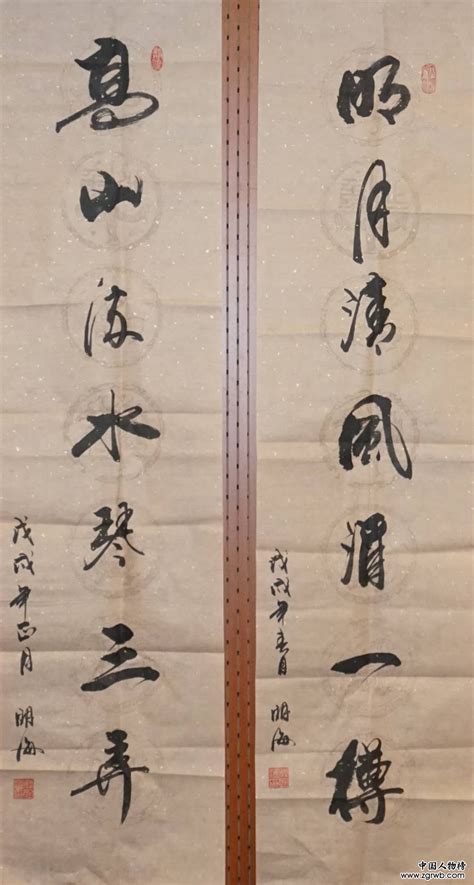 明月清風酒一樽
戊戌年春月 明海
高山流水琴三弄
戊戌年正月 明海
中国人物榜
www.zgrwb.com